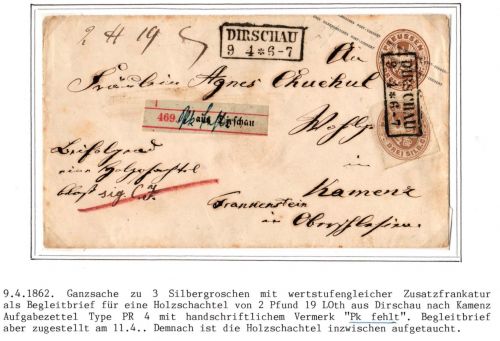 2 # 19
DIRSCHAU
9 4 * 6-7
PREUSSEN
An
Fräulein Agnes
DIRSCHAU
9 4 * 6-7
469. aus Dirschau
Wohlg.
Beifolgend
eine Holzschachtel
sig.
Kamenz
Frankenstein
in Oberschlesien.
DREI SILB
9.4.1862. Ganzsache zu 3 Silbergroschen mit wertstufengleicher Zusatzfrankatur
als Begleitbrief für eine Holzschachtel von 2 Pfund 19 LOth aus Dirschau nach Kamenz
Aufgabezettel Type PR 4 mit handschriftlichem Vermerk "Pk fehlt". Begleitbrief
aber zugestellt am 11.4.. Demnach ist die Holzschachtel inzwischen aufgetaucht.